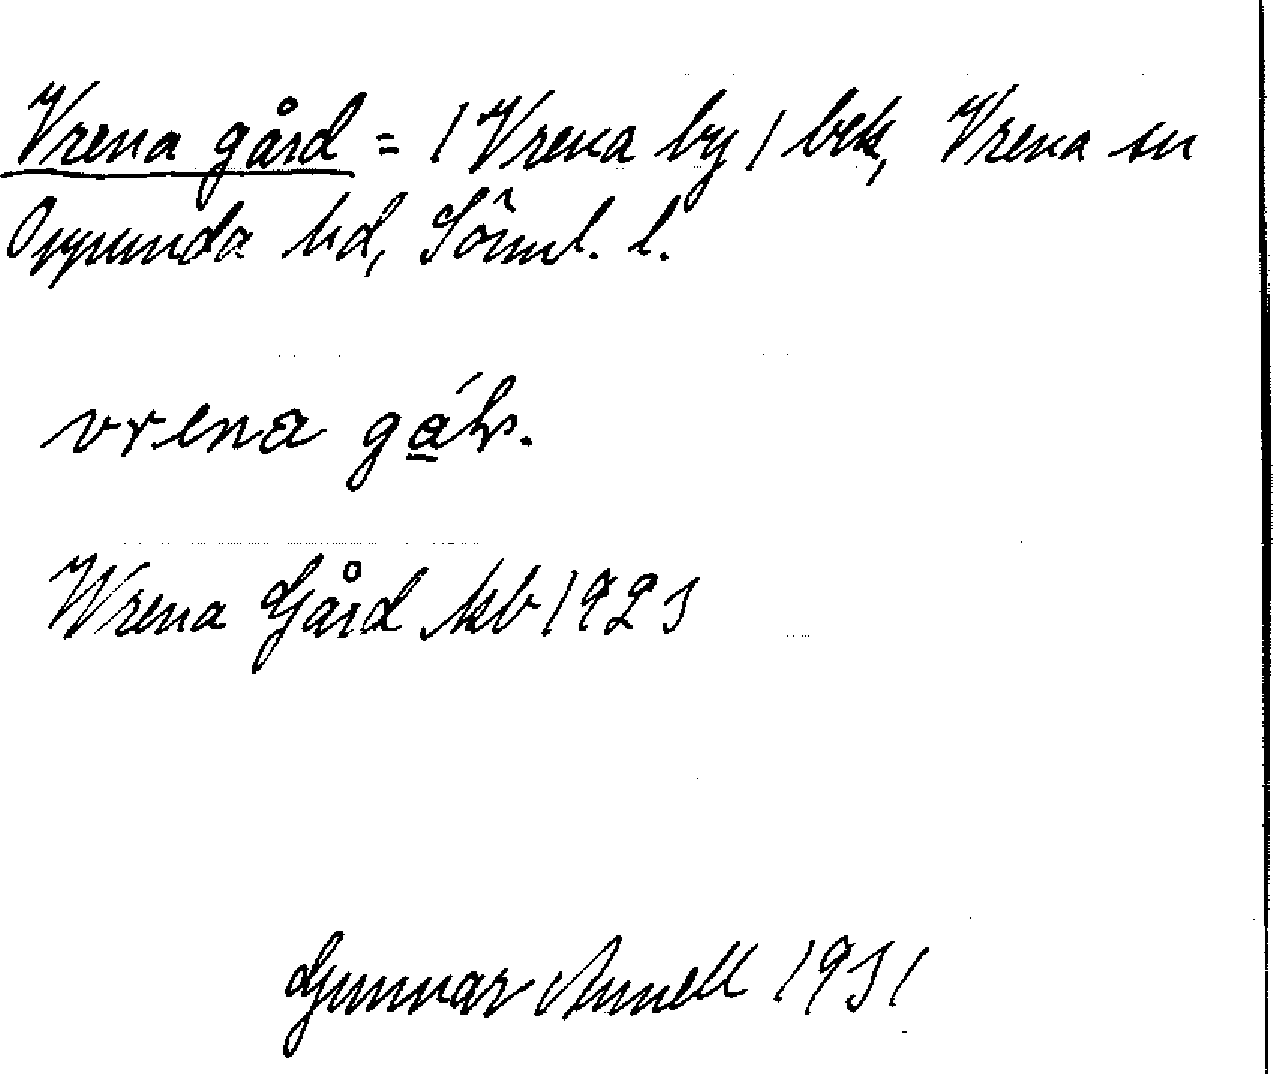 Vrena gård = / Vrena by / bek, Vrena sn
Oppunda hd, Söml. l.
vrena
Wrena Gård kb 1923
Gunnar Annell 1931